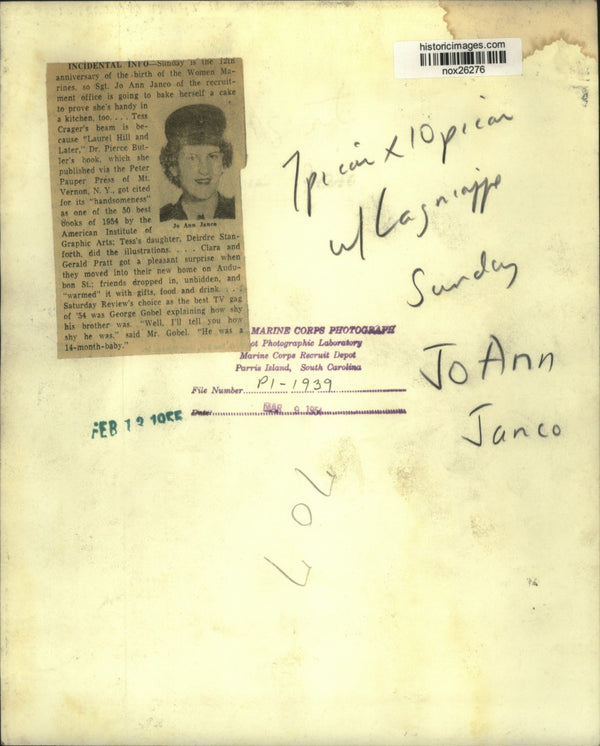 historicimages.com
nox26276
INCIDENTAL INFO—Sunday is the 12th
anniversary of the birth of the Women Ma-
rines, so Sgt. Jo Ann Janco of the recruit-
ment office is going to bake herself a cake
to prove she's handy in
a kitchen, too. . . . Tess
Crager's beam is be-
cause "Laurel Hill and
Later," Dr. Pierce But-
ler's book, which she
published via the Peter
Pauper Press of Mt.
Vernon, N. Y., got cited
for its "handsomeness"
as one of the 50 best
books of 1954 by the
American Institute of
Graphic Arts; Tess's daughter, Deirdre Stan-
forth, did the illustrations. . . . Clara and
Gerald Pratt got a pleasant surprise when
they moved into their new home on Audu-
bon St.; friends dropped in, unbidden, and
"warmed" it with gifts, food and drink. . . .
Saturday Review's choice as the best TV gag
of '54 was George Gobel explaining how shy
his brother was. "Well, I'll tell you how
shy he was," said Mr. Gobel. "He was a
14-month-baby."
Jo Ann Janco
7 picas x 10 picas
w/ Lagniappe
Sunday
Jo Ann
Janco
MARINE CORPS PHOTOGRAPH
ot Photographic Laboratory
Marine Corps Recruit Depot
Parris Island, South Carolina
File Number P1-1939
Date: MAR 9 1954
FEB 13 1955
707